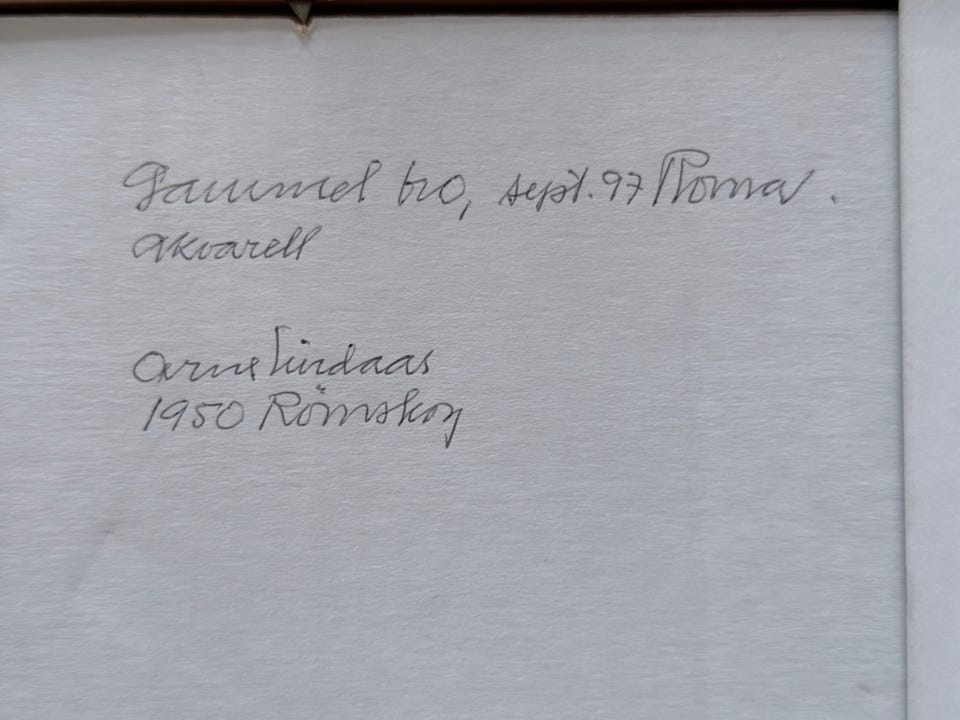 Gammel bro, sept. 97 Roma.
Akvarell
Arne Lindaas
1950 Römskog